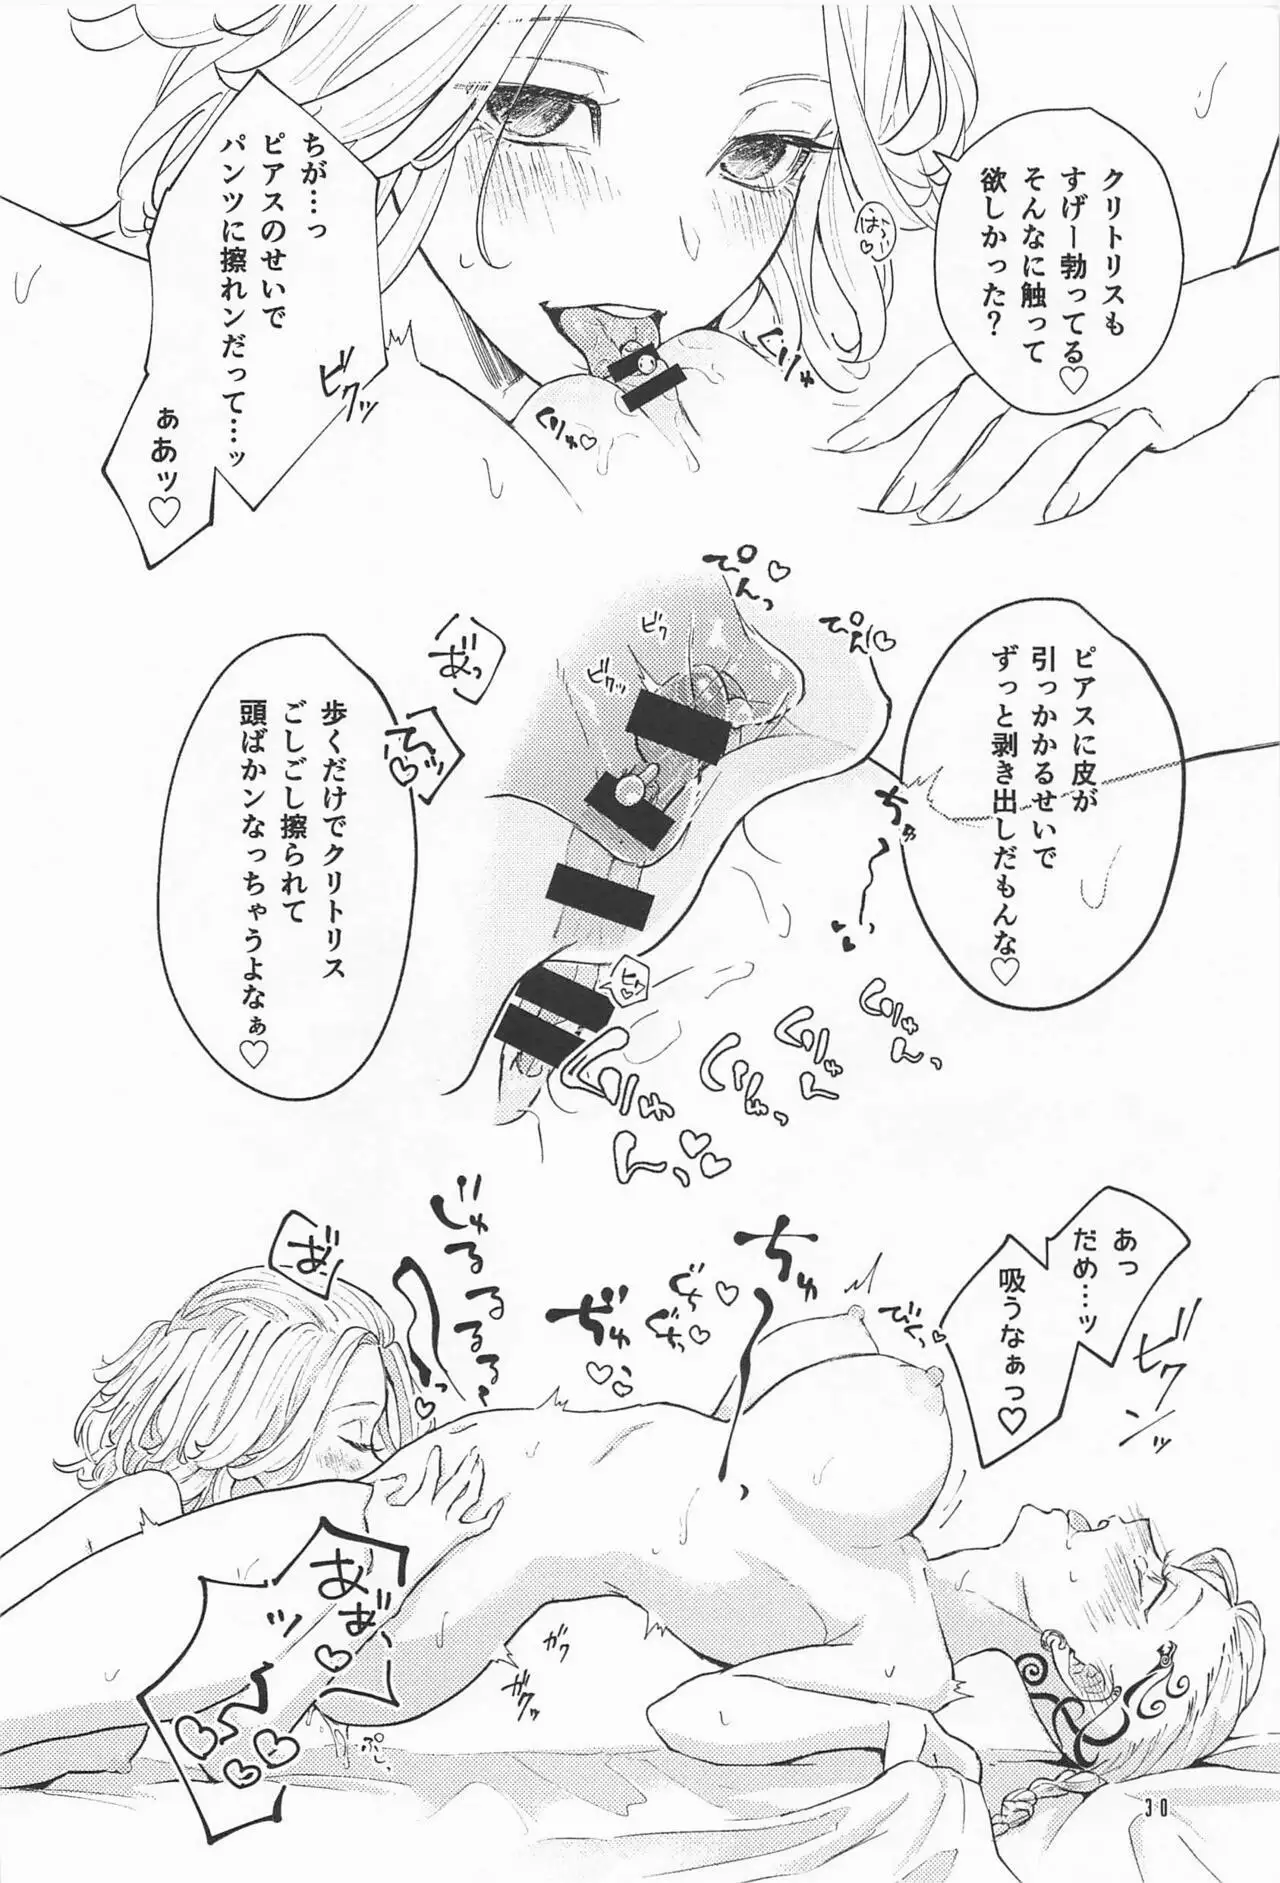 クリトリスも
すげー勃ってる♡
そんなに触って
欲しかった？
はぁっ♡
ちが…っ
ピアスのせいで
パンツに擦れンだって…ッ
ぁあッ♡
ビクッ
くりゅ
くりゅ♡
ぴんっ♡
ぴん♡
ビク
ビクッ
ピアスに皮が
引っかかるせいで
ずっと剥き出しだもんな♡
あ゛っ
てッ♡
歩くだけでクリトリス
ごしごし擦られて
頭ばカンなっちゃうよなぁ♡
ちゅ〜っ♡♡
ヒク♡
くりゅん、
くりゅ
くりゅん、♡♡♡
あっ
だめ…ッ
吸うなぁっ♡
ビクンッ
びくっ♡
ちゅ〜
ぐちっ♡
ぐちっ♡
ぢゅ
じゅるるるるっ♡
あ゛
あ゛あ゛、〜ッ♡♡♡♡♡
ガク
ガクッ
ぷし
30